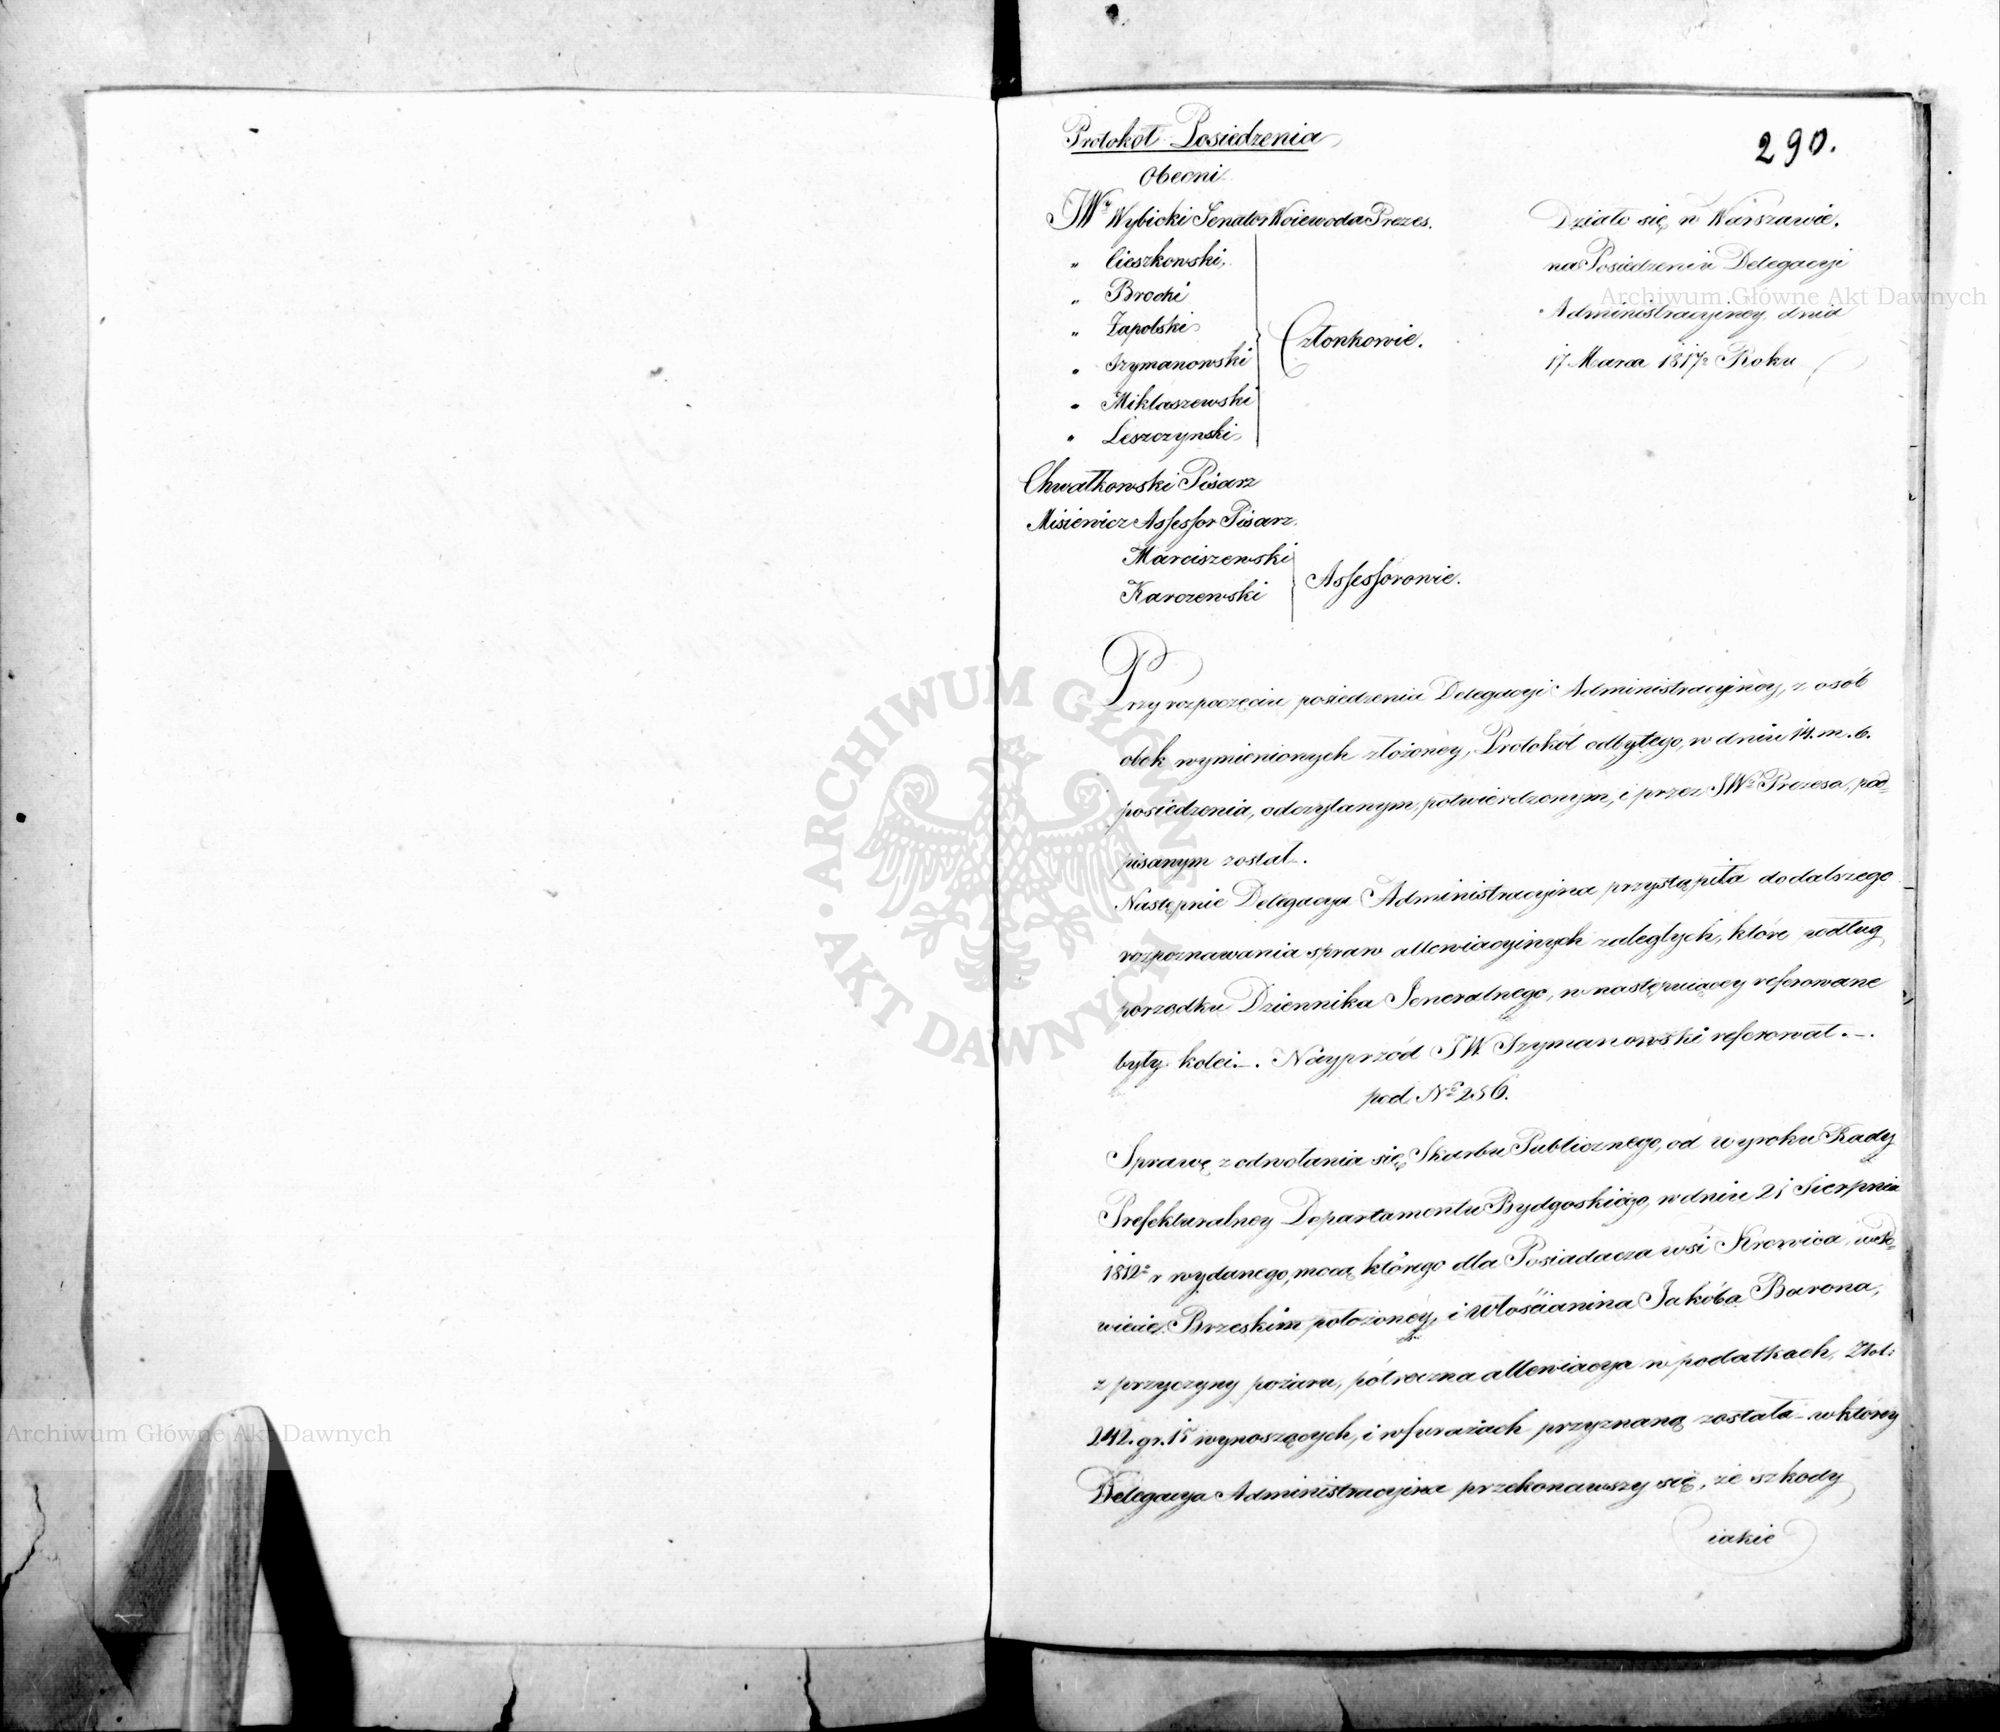 290.
Protokół Posiedzenia
Obecni
JW. Wybicki Senator Woiewoda Prezes.
„ Cieszkowski,
„ Brocki
„ Zapolski
„ Szymanowski
„ Miklaszewski
„ Leszczynski
Członkowie.
Chwałkowski Pisarz
Misiewicz Assessor Pisarz.
Marciszewski
Karczewski
Assessorowie.
Działo się w Warszawie.
na Posiedzeniu Delegacyi
Administracyiney dnia
17 Marca 1817º Roku
Przy rozpoczęciu posiedzenia Delegacyi Administracyiney, z osób
obok wymienionych złożoney, Protokół odbytego, w dniu 14. m. b.
posiedzenia, odczytanym, potwierdzonym, i przez JW. Prezesa, pod=
pisanym został.
Następnie Delegacya Administracyina przystąpiła do dalszego
rozpoznawania spraw allewiacyinych zaległych, które według
porządku Dziennika Jeneralnego, w następuiącey referowane
były kolei. Nayprzód JW Szymanowski referował.
pod Nº 256.
Sprawę z odwołania się Skarbu Publicznego, od wyroku Rady
Prefekturalney Departamentu Bydgoskiego, w dniu 21 Sierpnia
1812º r wydanego, mocą którego dla Posiadacza wsi Krowica, w
wiecie Brzeskim położoney, i Włościanina Jakóba Barona,
z przyczyny pożaru, półroczna allewiacya w podatkach, Złot:
242. gr. 15 wynoszących, i w furażach przyznaną została w którey
Delegacya Administracyina przekonawszy się, że szkody
iakie
Archiwum Główne Akt Dawnych
Archiwum Główne Akt Dawnych
ARCHIWUM GŁÓWNE · AKT DAWNYCH